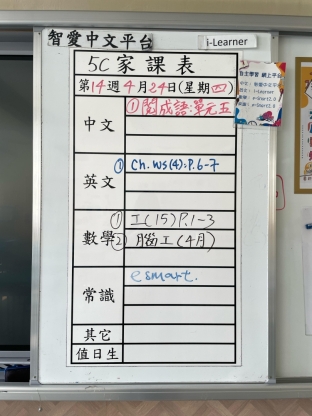 智愛中文平台
i-Learner
5C家課表
第14週4月24日(星期四)
中文
①閱成語:單元五
英文
① Ch. WS(4):P.6-7
數學
① 工(15)P.1-3
② 腦工(4月)
常識
esmart.
其它
值日生
自主學習 網上平台
中文: 智愛中文平台
英文: i-Learner